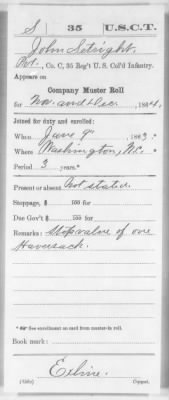 S | 35 | U.S.C.T.
John Seright
Pvt., Co. C, 35 Reg't U. S. Col'd Infantry.
Appears on
Company Muster Roll
for Nov. and Dec., 1864.
Joined for duty and enrolled:
When June 9", 1863.*
Where Washington, N.C.*
Period 3 years.*
Present or absent Not stated.
Stoppage, $ 100 for
Due Gov't $ 100 for
Remarks: Stop value of one
Haversack.
* See enrollment on card from muster-in roll.
Book mark:
(849) Copyist.